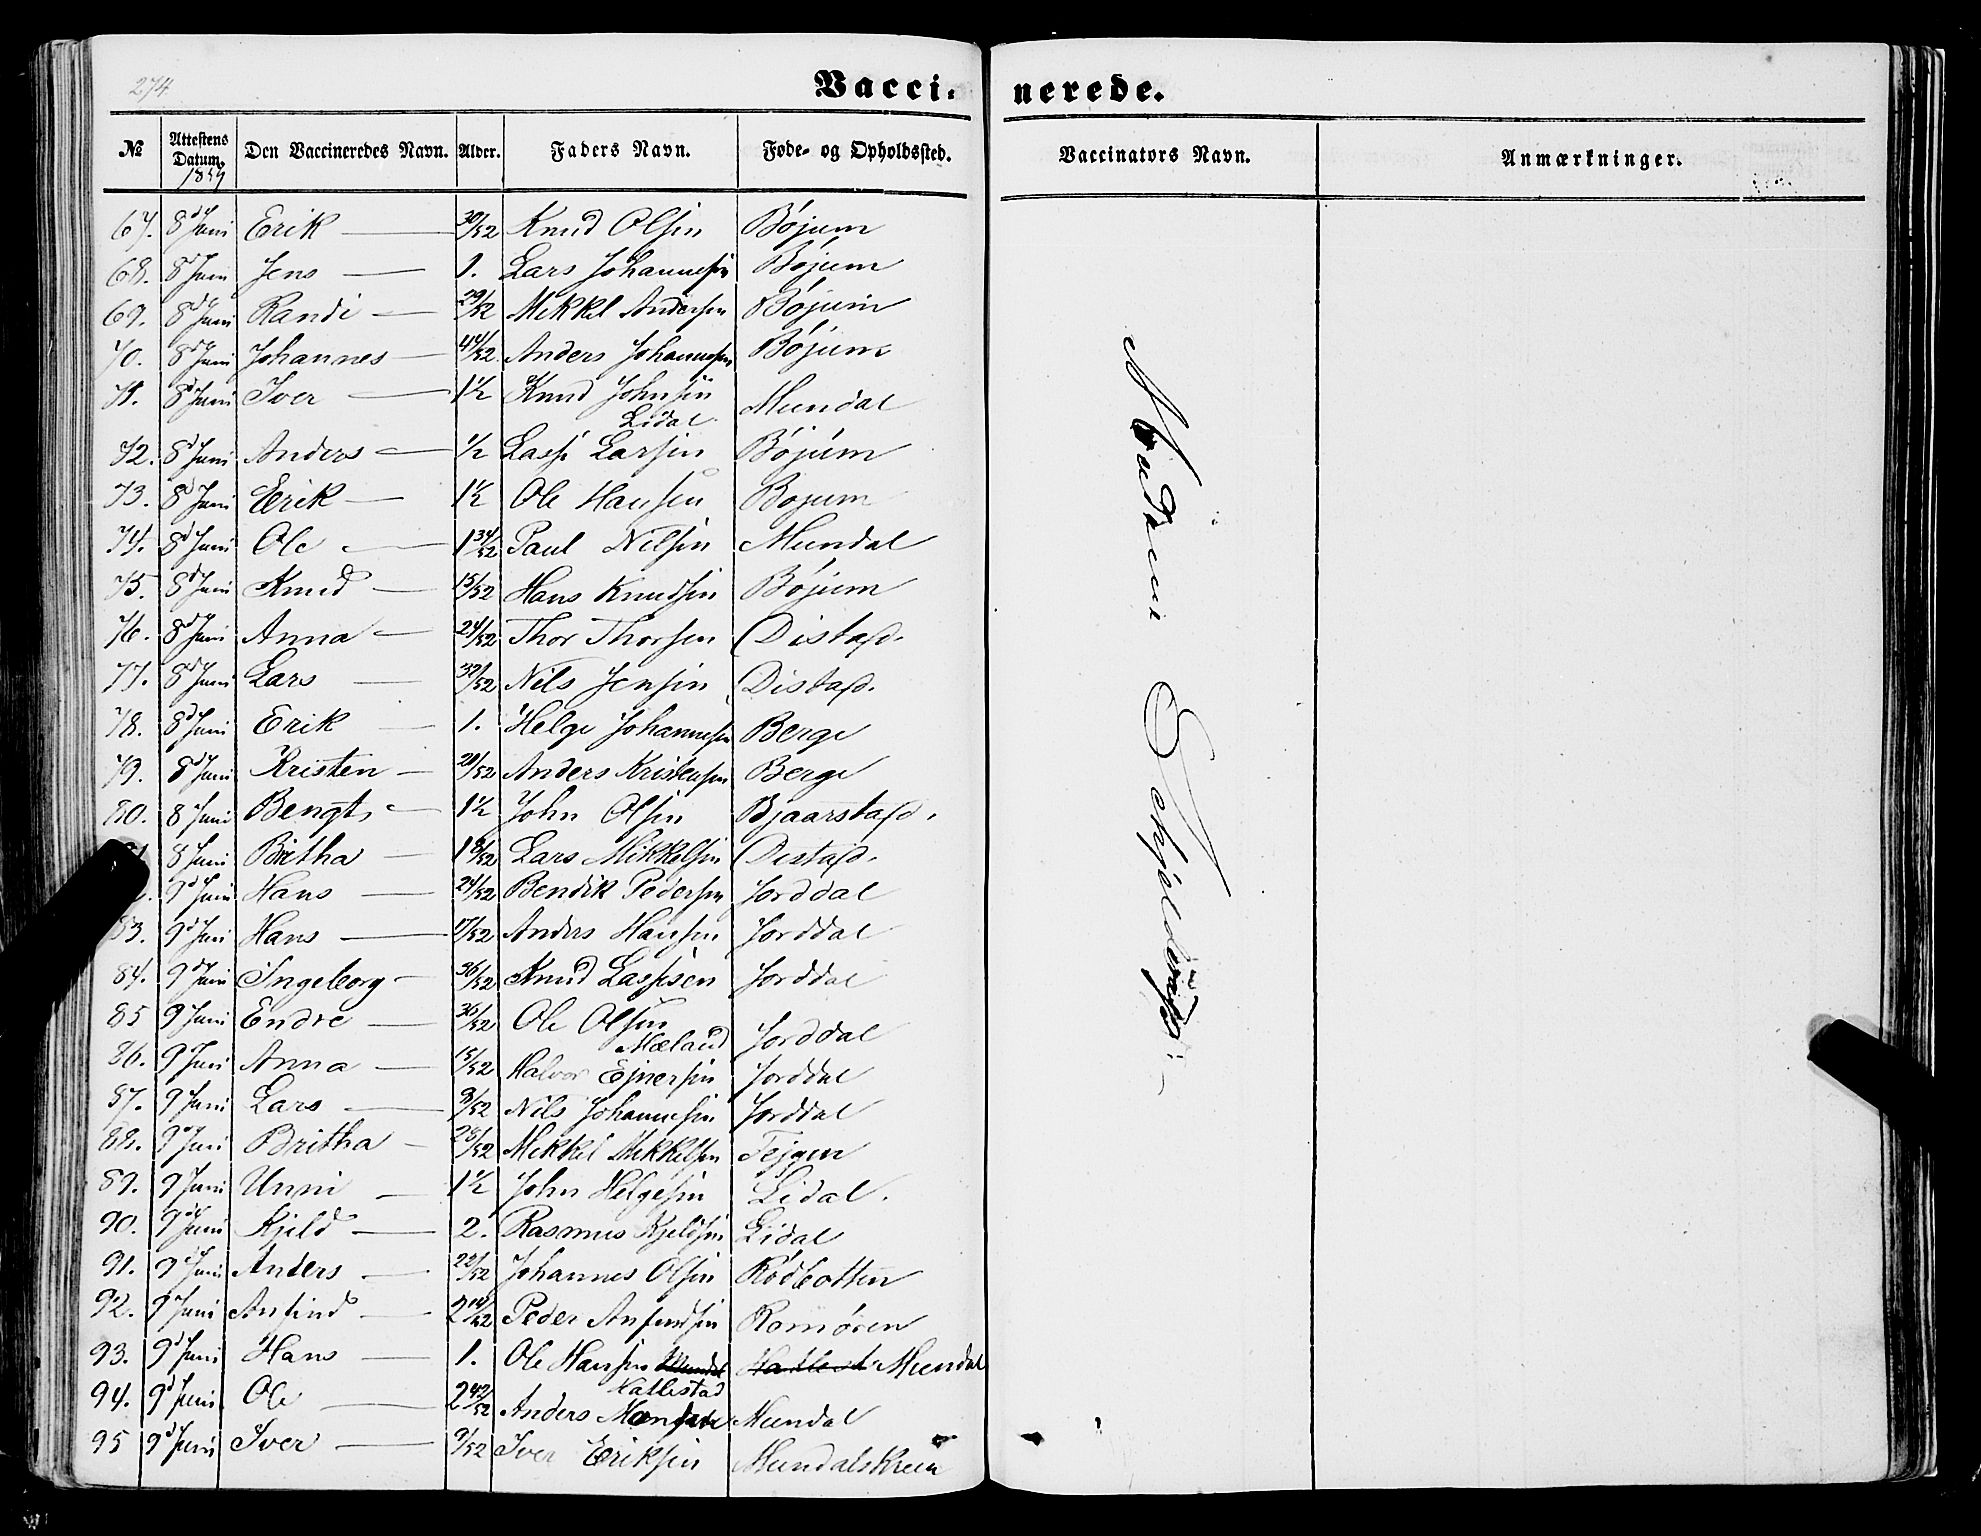 274
Vaccinerede.
№ Attestens Datum. 1859 Den Vaccineredes Navn. Alder. Faders Navn. Føde- og Opholdssted. Vaccinators Navn. Anmærkninger.
67. 8d Juni Erik 30/52 Knud Olsen Bøjum
68. 8d Juni Jens 1. Lars Johannesen Bøjum
69. 8de Juni Randi 29/52 Mikkel Andersen Bøjum
70. 8de Juni Johannes 44/52 Anders Johannesen Bøjum
71. 8d Juni Iver 1½ Knud Johnsen Lidal Mundal
72. 8d Juni Anders ½ Lasse Larsen Bøjum
73. 8d Juni Erik 1½ Ole Hansen Bojum
74. 8d Juni Ole 1 34/52 Paul Nilsen Mundal
75. 8d Juni Knud 15/52 Hans Knudsen Bøjum
76. 8de Juni Anna 24/52 Thor Thorsen Distad
77. 8de Juni Lars Nils Jensen Distad.
78. 8d Juni Erik 1. Helge Johannesen Berge
79. 8d Juni Kristen 20/52 Anders Kristensen Berge
80. 8 Juni Bengt 1½ John Olsen Bjaarstad.
8 Juni Britha 1 8/52 Lars Mikkelsen Distad.
9d Juni Hans 24/52 Bendik Pedersen Jorddal
83. 9d Juni Hans 17/52 Anders Hansen Jorddal
84. 9de Juni Ingeborg 36/52 Knud Lassesen Jorddal
85 9 Juni Endre 36/52 Ole Olsen Mæland Jorddal
86. 9 Juni Anna 15/52 Halvor Ejnersen Jorddal
87. 9 Juni Lars 9/52 Nils Johannesen Jorddal
88. 9de Juni Britha 28/52 Mikkel Mikkelsen Tejgen
89. 9 Juni Unni 1½ John Helgesen Lidal.
90. 9de Juni Kjeld 2. Rasmus Kjeldsen Lidal
91. 9d Juni Anders 22/52 Johannes Olsen Rødbotten
92. 9 Juni Anfind 2 Peder Anfindsen Romøren
93. 9d Juni Hans 1. Ole Hansen Mundal Hatlestad Mundal
94. 9d Juni Ole 2 42/52 Anders Monsen Hatlestad Mundal
95 9d Juni Iver 9/52 Iver Eriksen Mundalskreen
Madame